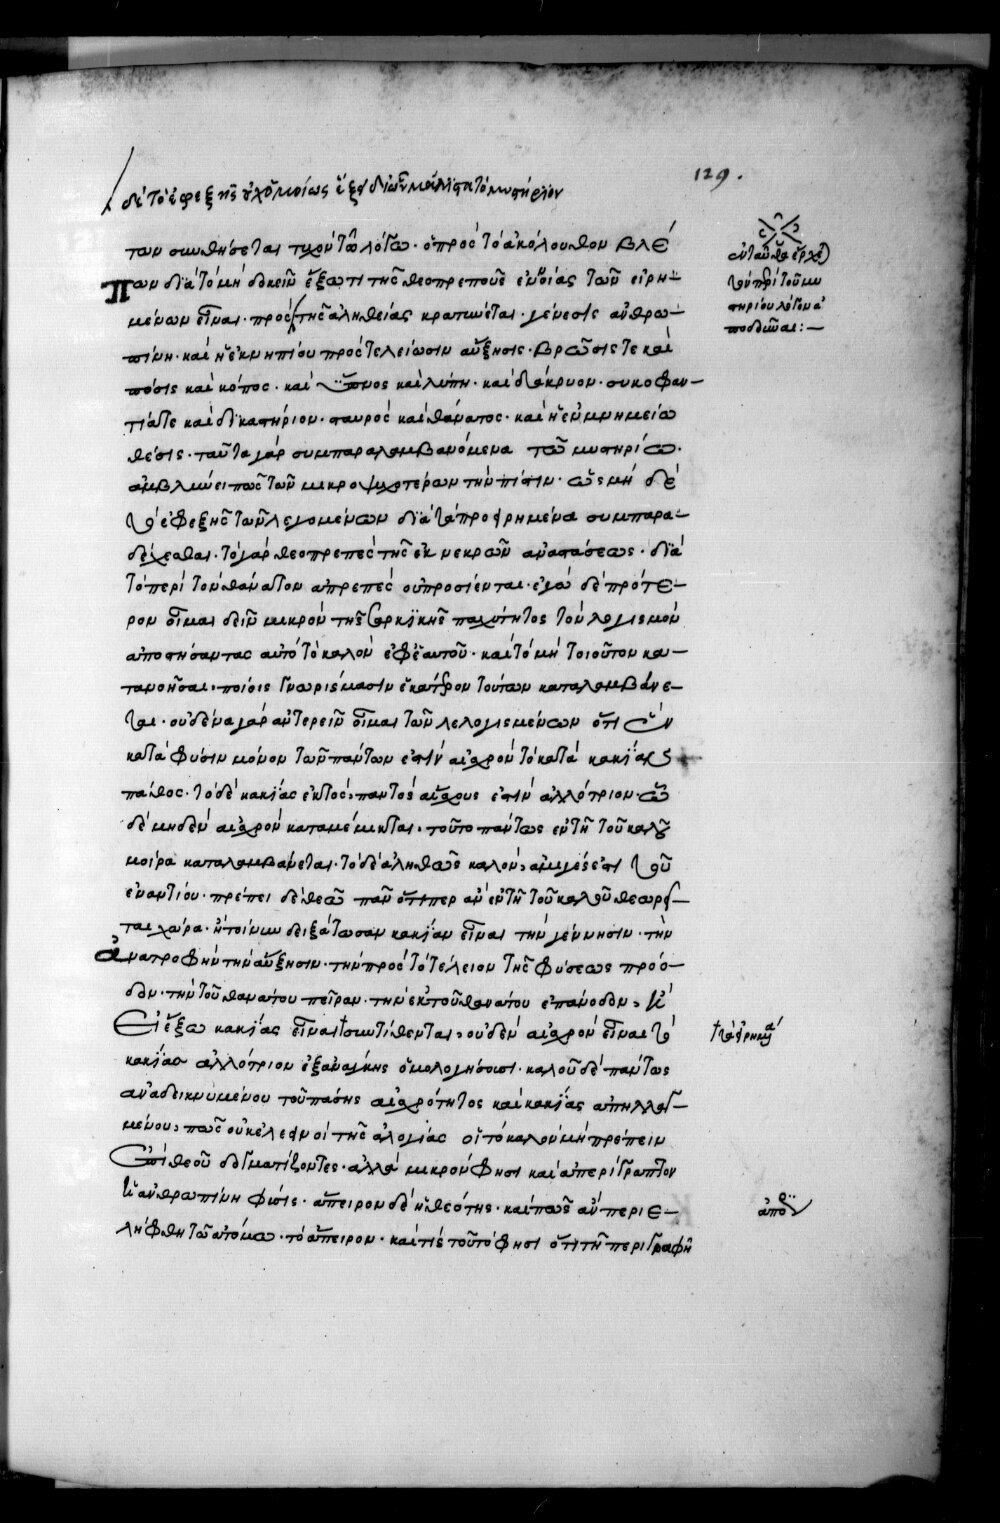 129.
δὲ τὸ ἐφεξῆς οὐχ ὁμοίως ἕξει δι' ὧν μάλιστα τὸ μυστήριον
των συνθήσεται τυχὸν τῶ λόγω· ὁ πρὸς τὸ ἀκόλουθον βλέ
πων διὰ τὸ μὴ δοκεῖν ἔξω τι τῆς θεοπρεποῦς ἐννοίας τῶν εἰρη-
μένων εἶναι· πρὸς τῆς ἀληθείας κρατύνεται· γένεσις ἀνθρω-
πίνη· καὶ ἡ ἐκ νηπίου πρὸς τελείωσιν αὔξησις· βρῶσίς τε καὶ
πόσις καὶ κόπος· καὶ ὕπνος καὶ λύπη· καὶ δάκρυον· συκοφαν-
τία τε καὶ δικαστήριον· σταυρὸς καὶ θάνατος· καὶ ἡ ἐν μνημείω
θέσις· ταῦτα γὰρ συμπαραλαμβανόμενα τῶ μυστηρίω·
ἀμβλύνει πως τῶν μικροψυχοτέρων τὴν πίστιν· ὡς μὴ δὲ
τὸ ἐφεξῆς τῶν λεγομένων διὰ τὰ προειρημένα συμπαρα-
δέχεσθαι· τὸ γὰρ θεοπρεπὲς τῆς ἐκ νεκρῶν ἀναστάσεως· διὰ
τὸ περὶ τὸν θάνατον ἀπρεπὲς οὐ προσίενται· ἐγὼ δὲ πρότε-
ρον οἶμαι δεῖν μικρὸν τῆς σαρκικῆς παχύτητος τὸν λογισμὸν
ἀποστήσαντας αὐτὸ τὸ καλὸν ἐφ' ἑαυτοῦ· καὶ τὸ μὴ τοιοῦτον κα-
τανοῆσαι· ποίοις γνωρίσμασιν ἑκάτερον τούτων καταλαμβάνε-
ται· οὐδένα γὰρ ἀντερεῖν οἶμαι τῶν λελογισμένων ὅτι ἓν
κατὰ φύσιν μόνον τῶν πάντων ἐστὶν αἰσχρὸν τὸ κατὰ κακίας
πάθος· τὸ δὲ κακίας ἐκτὸς, παντὸς αἴσχους ἐστὶν ἀλλότριον· ὧ
δὲ μηδὲν αἰσχρὸν καταμέμικται· τοῦτο πάντως ἐν τῆ τοῦ καλοῦ
μοίρα καταλαμβάνεται· τὸ δὲ ἀληθῶς καλὸν, ἀμιγές ἐστι τοῦ
ἐναντίου· πρέπει δὲ θεῶ πᾶν ὅτιπερ ἂν ἐν τῆ τοῦ καλοῦ θεωρεῖ-
ται χώρα· ἢ τοίνυν δειξάτωσαν κακίαν εἶναι τὴν γέννησιν· τὴν
ἀνατροφὴν τὴν αὔξησιν· τὴν πρὸς τὸ τέλειον τῆς φύσεως πρόο-
δον· τὴν τοῦ θανάτου πεῖραν· τὴν ἐκ τοῦ θανάτου ἐπάνοδον, ἢ
εἰ ἔξω κακίας εἶναι † συντίθενται, οὐδὲν αἰσχρὸν εἶναι τὸ
κακίας ἀλλότριον ἐξ ἀνάγκης ὁμολογήσουσι· καλοῦ δὲ πάντως
ἀναδεικνυμένου τοῦ πάσης αἰσχρότητος καὶ κακίας ἀπηλλαγ-
μένου, πῶς οὐκ ἐλεεινοὶ τῆς ἀλογίας οἱ τὸ καλὸν μὴ πρέπειν
ἐπὶ θεοῦ δογματίζοντες· ἀλλὰ μικρὸν φησὶ καὶ ἀπερίγραπτον
ἡ ἀνθρωπίνη φύσις· ἄπειρον δὲ ἡ θεότης· καὶ πῶς ἂν περιε-
λήφθη τῶ ἀτόμω· τὸ ἄπειρον· καὶ τίς τοῦτό φησι ὅτι τῆ περιγραφῆ
ἐνταῦθα ἔρχε
τὸν περὶ τοῦ μυ
στηρίου λόγον ἀ
ποδοῦναι: —
† τὰ εἰρημένα